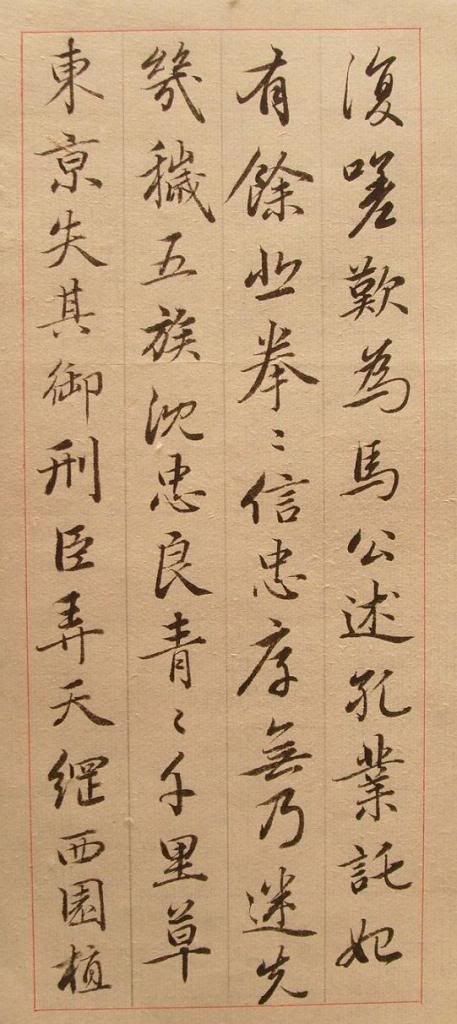 復嗟歎為馬公述孔業託始
有餘悲拳〻信忠厚無乃迷先
幾穢五族沈忠良青〻千里草
東京失其御刑臣弄天綱西園植